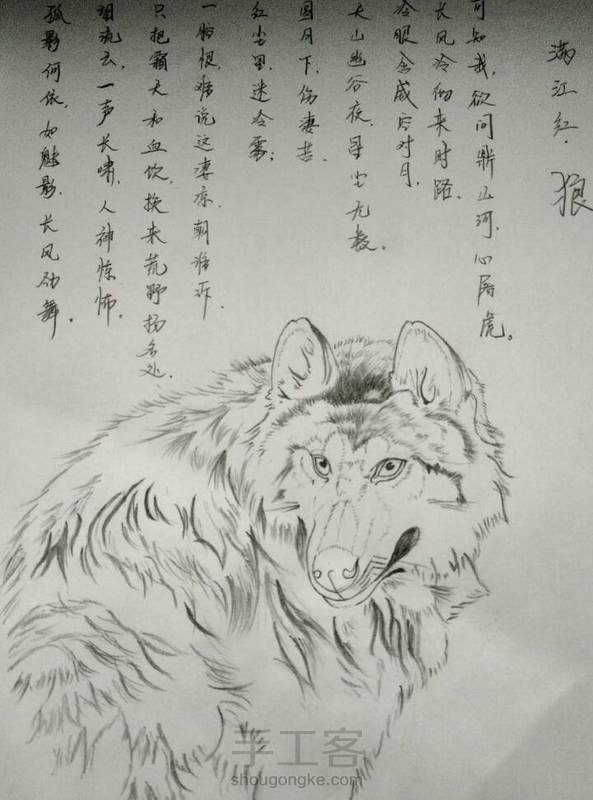 满江红.狼
可知我,欲问鼎山河,心屠虎。
长风冷彻来时路.
冷眼含威空对月.
大山幽谷夜.星尘无数.
圆月下.伤凄苦
红尘里.迷冷雾;
一腔恨,难说这凄凉.朝谁诉.
只把霜天和血饮.换来荒野扬名处.
流云.一声长啸,人神惊怖.
孤影何依.如魅影.长风劲舞.
手工客
shougongke.com